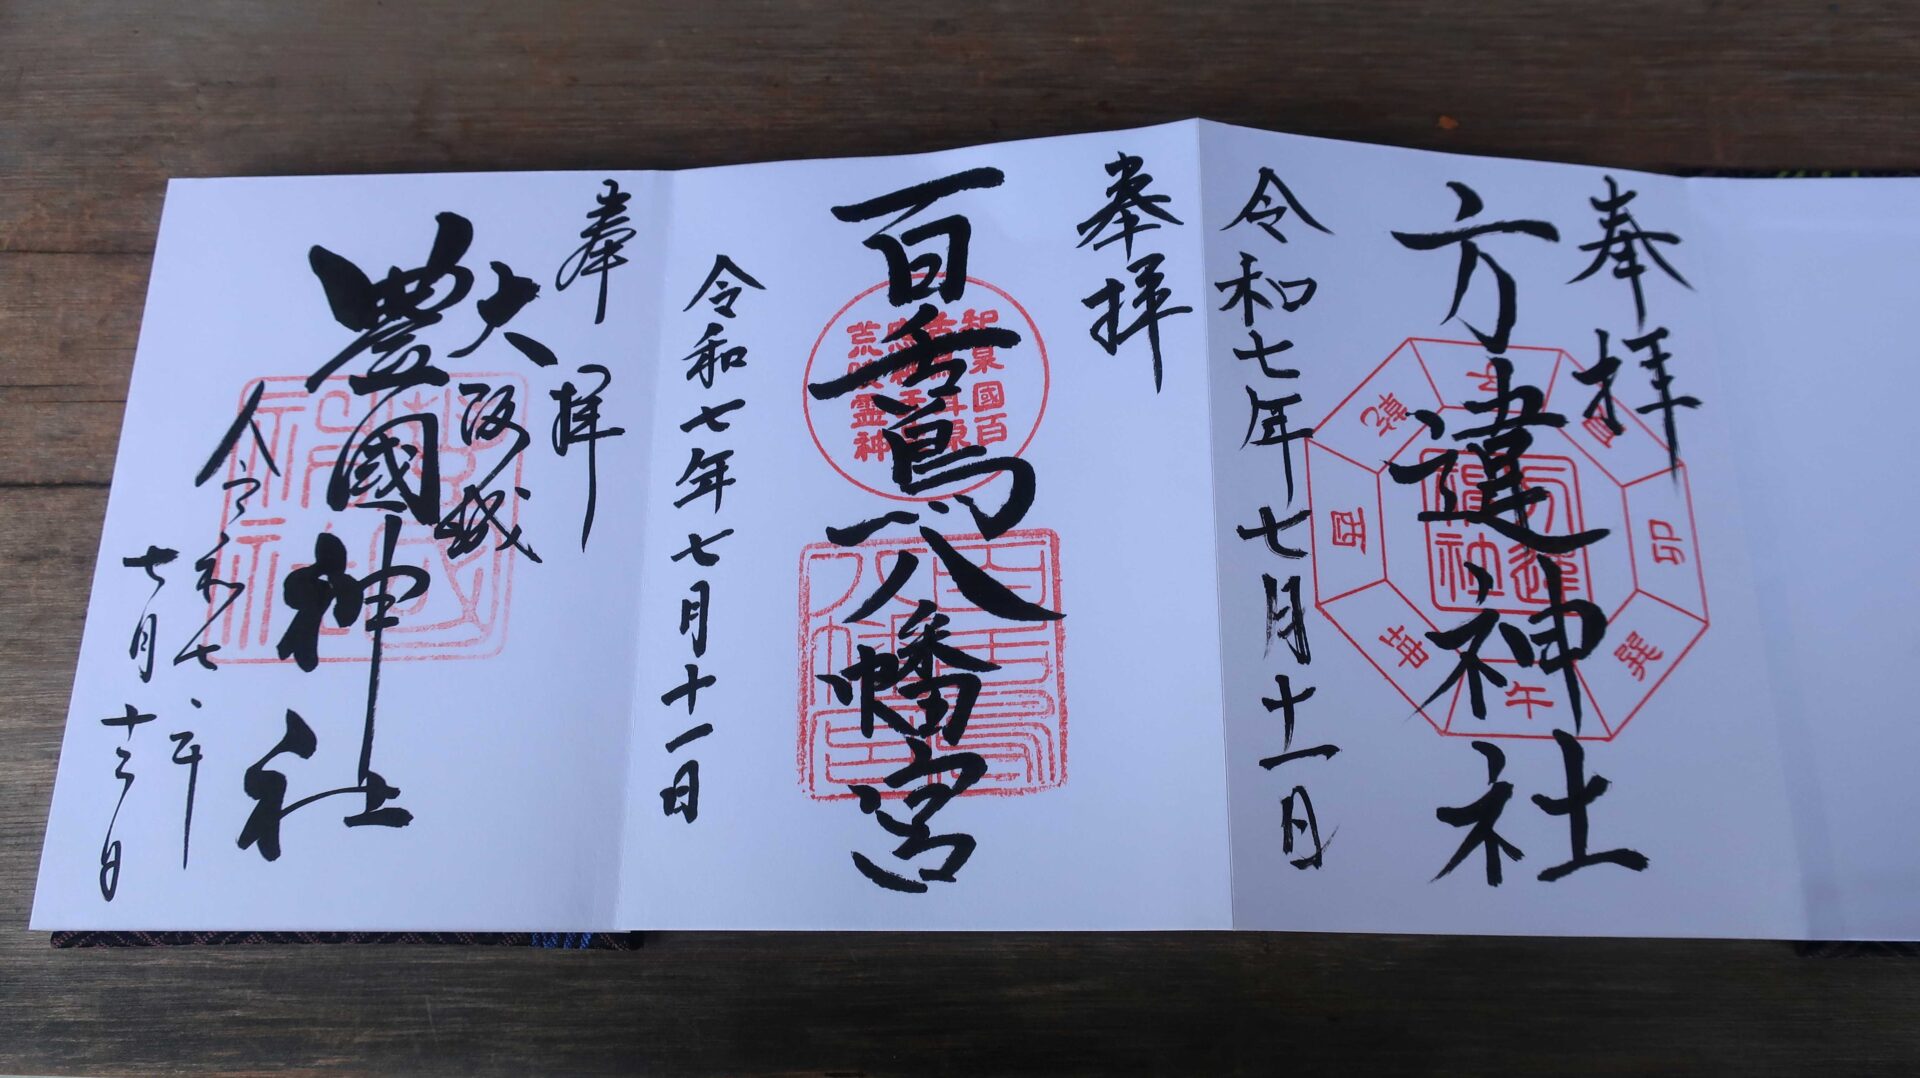 奉拝
方違神社
令和七年七月十一日
卯
巽
午
坤
酉
乾
方違神社
奉拝
百舌鳥八幡宮
令和七年七月十一日
和泉國百
荒陵霊神
百舌鳥八幡宮
奉拝
大阪城
豊國神社
令和七年
七月十三日